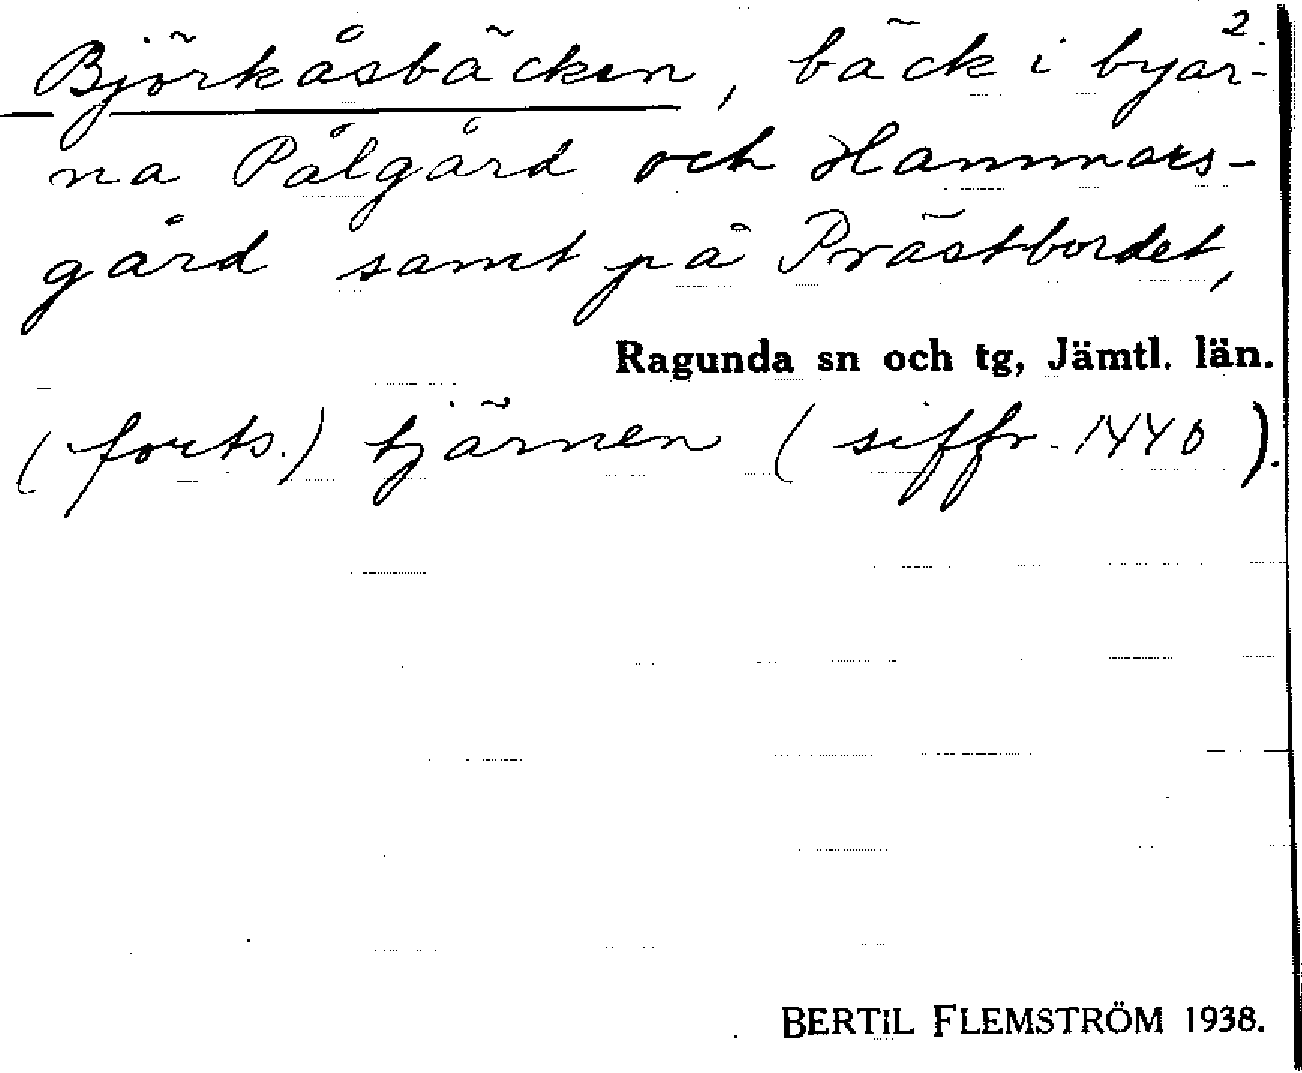 2.
Björkåsbäcken, bäck i byar-
na Pålgård och Hammars-
gård samt på Prästbordet,
Ragunda sn och tg, Jämtl. län.
(forts.) tjärnen (siffr. 1440).
BERTIL FLEMSTRÖM 1938.